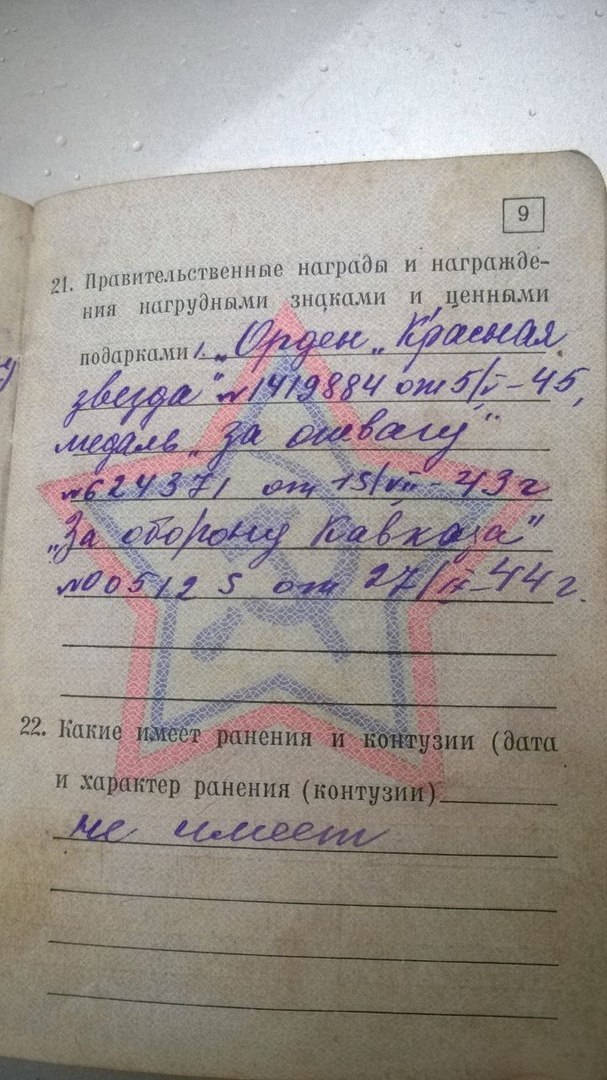 9
21. Правительственные награды и награжде-
ния нагрудными знаками и ценными
подарками 1. „Орден „Красная
звезда" №1419884 от 5/II-45,
медаль „За отвагу"
№624371 от 15/VII-43г
„За оборону Кавказа"
№005125 от 27/IX-44г.
22. Какие имеет ранения и контузии (дата
и характер ранения (контузии)
не имеет